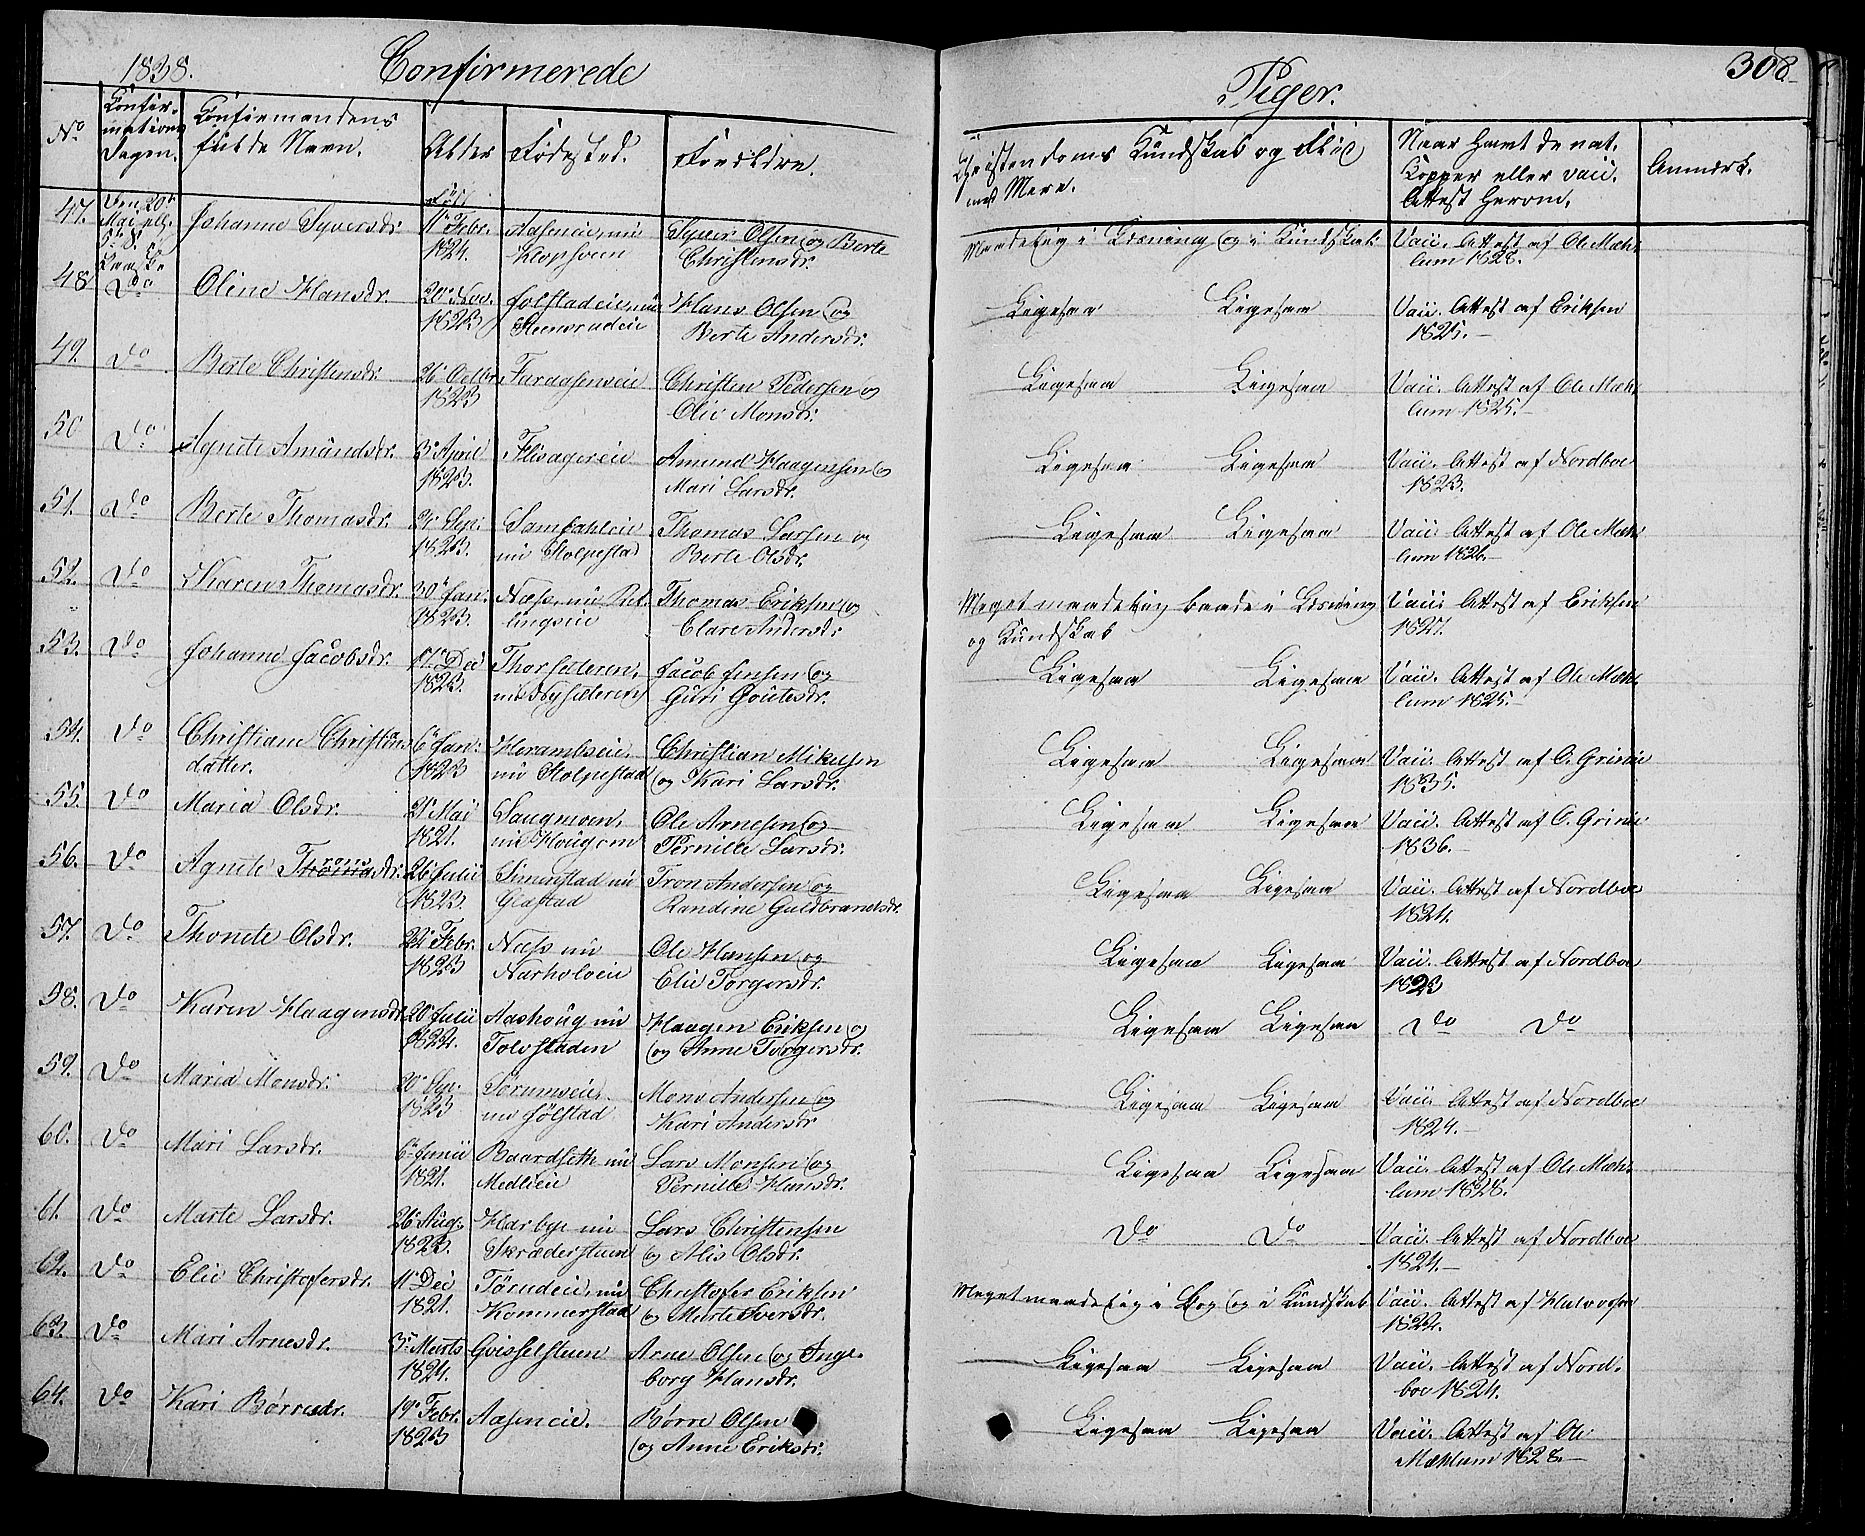 1838.
Confirmerede
Piger.
308
No
Confir-
mations
Dagen.
Confirmandens
fulde Navn.
Alder
Fødested.
Forældre.
Christendoms Kundskab og Flid
med Mere.
Naar havt de nat.
Kopper eller vacc.
Attest herom.
Anmærk.
47.
Den 20de
Mai
Johanne Syversdr.
Født
11te Febr.
1824.
Aaseneie, nu
Klopsveen
Syver Olsen og Berte
Christensdr.
Maadelig i Læsning og i Kundskab
Vacc. Attest af Ole Mæh-
lum 1828.
48
Do
Oline Hansdr.
20de Nov.
1823
Jølstadeie, nu
Steensrudeie
Hans Olsen og
Berte Andersdr.
Ligesaa Ligesaa
Vacc. Attest af Eriksen
1825.
49.
Do
Berte Christensdr.
26de Octbr.
1823
Faraaseneie
Christen Pedersen og
Olie Monsdr.
Ligesaa Ligesaa
Vacc. Attest af Ole Mæh-
lum 1825.
50
Do
Agnete Amundsdr.
3de April
1823.
Flisagereie
Amund Haagensen og
Mari Larsdr.
Ligesaa Ligesaa
Vacc. Attest af Nordboe
1823.
51.
Do
Berte Thomasdr.
Sep.
1823.
nu Stolpestad
Thomas Larsen og
Berte Olsdr.
Ligesaa Ligesaa
Vacc. Attest af Ole Mæh-
lum 1826.
52.
Do
Karen Thomasdr.
30te Jan.
1823.
Næss, nu Ret-
lingseie
Thomas Eriksen og
Clare Andersdr
Meget maadelig baade i Læsning
og Kundskab
Vacc. Attest af Eriksen
1827.
53.
Do
Johanne Jacobsdr.
17de Dec
1823.
Thorsæteren,
nu Nysæteren
Jacob Jensen og
Guri Goutesdr.
Ligesaa Ligesaa
Vacc. Attest af Ole Mæh-
lum 1825.
54.
Do
Christiane Christians
datter.
6te Jan:
1823
Herambseie,
nu Stolpestad
Christian Mikelsen
og Kari Larsdr.
Ligesaa Ligesaa
Vacc. Attest af O. Griini
1835.
55.
Do
Maria Olsdr.
21de Mai
1821.
Saugmoen,
nu Hougom
Ole Arnesen og
Pernille Larsdr.
Ligesaa Ligesaa
Vacc. Attest af O. Griini
1836.
56.
Do
Agnete Thronsdr.
26de Julii
1823
Simenstad nu
Glastad
Tron Andersen og
Randine Guldbrandsdr.
Ligesaa Ligesaa
Vacc. Attest af Nordboe
1824.
57.
Do
Thonete Olsdr.
22de Febr.
1823
Næss nu
Narholoeie
Ole Hansen og
Elie Torgersdr.
Ligesaa Ligesaa
Vacc. Attest af Nordboe
1823
58.
Do
Karen Haagensdr.
20de Julii
1822.
Aashoug nu
Tolvstaden
Haagen Eriksen og
og Anne Torgersdr.
Ligesaa Ligesaa
Do Do
59.
Do
Maria Monsdr.
20de Sep.
1823
Sørumseie,
nu Jølstad
Mons Andersen og
Kari Andersdr
Ligesaa Ligesaa
Vacc. Attest af Nordboe
1824.
60.
Do
Mari Larsdr.
6te Junii
1821.
Baardseth nu
Medlieie
Lars Monsen og
Pernille Hansdr.
Ligesaa Ligesaa
Vacc. Attest af Ole Mæh-
lum 1828.
61.
Do
Marte Larsdr.
26de Aug.
1823.
Harbye nu
Skræderstuen
Lars Christensen
og Alis Olsdr.
Do Do
Vacc. Attest af Nordboe
1824.
62.
Do
Elie Christofersdr.
11te Dec
1821.
Tørudeie, nu
Kommerstad
Christofer Eriksen
og Marte Iversdr.
Meget maadelig i Bog og i Kundskab
Vacc. Attest af Halvorsen
1822.
63.
Do
Mari Arnesdr.
3de Marts
1824.
Gvisselstuen
Arne Olsen og Inge-
borg Hansdr.
Ligesaa Ligesaa
Vacc. Attest af Nord-
boe 1824.
64.
Do
Kari Børresdr.
19de Febr.
1823
Aaseneie.
Børre Olsen
og Anne Eriksdr.
Ligesaa Ligesaa
Vacc. Attest af Ole
Mæhlum 1828.